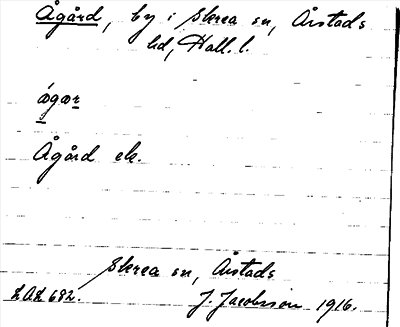 Ågård, by i Skrea sn, Årstads
hd, Hall. l.
ågær
Ågård ek.
Skrea sn, Årstads
LAL 682.
J. Jacobsson 1916.